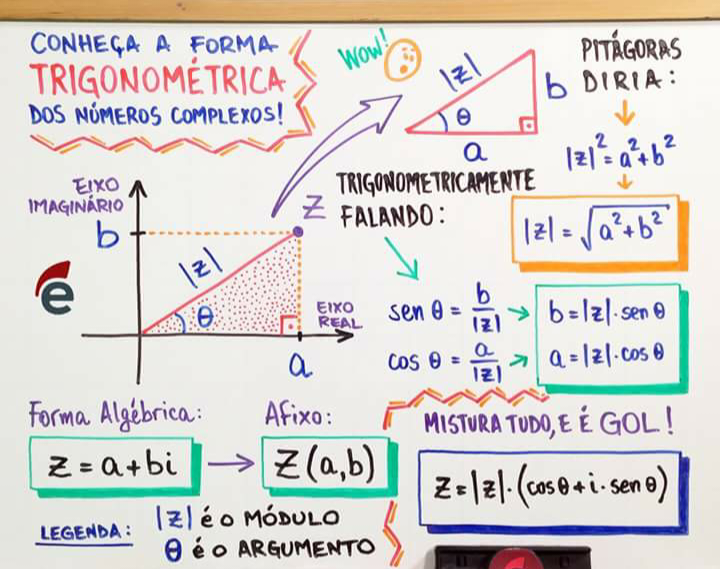 CONHEÇA A FORMA
TRIGONOMÉTRICA
DOS NÚMEROS COMPLEXOS!
WOW!
|z|
b
θ
a
PITÁGORAS
DIRIA:
|z|² = a² + b²
|z| = √a² + b²
EIXO
IMAGINÁRIO
b
|z|
θ
Z
EIXO
REAL
a
e
TRIGONOMETRICAMENTE
FALANDO:
sen θ = b/|z| → b = |z| · sen θ
cos θ = a/|z| → a = |z| · cos θ
Forma Algébrica:
Z = a + bi
Afixo:
Z(a,b)
MISTURA TUDO, E É GOL!
Z = |z| · (cos θ + i · sen θ)
LEGENDA: |z| é o MÓDULO
θ é o ARGUMENTO